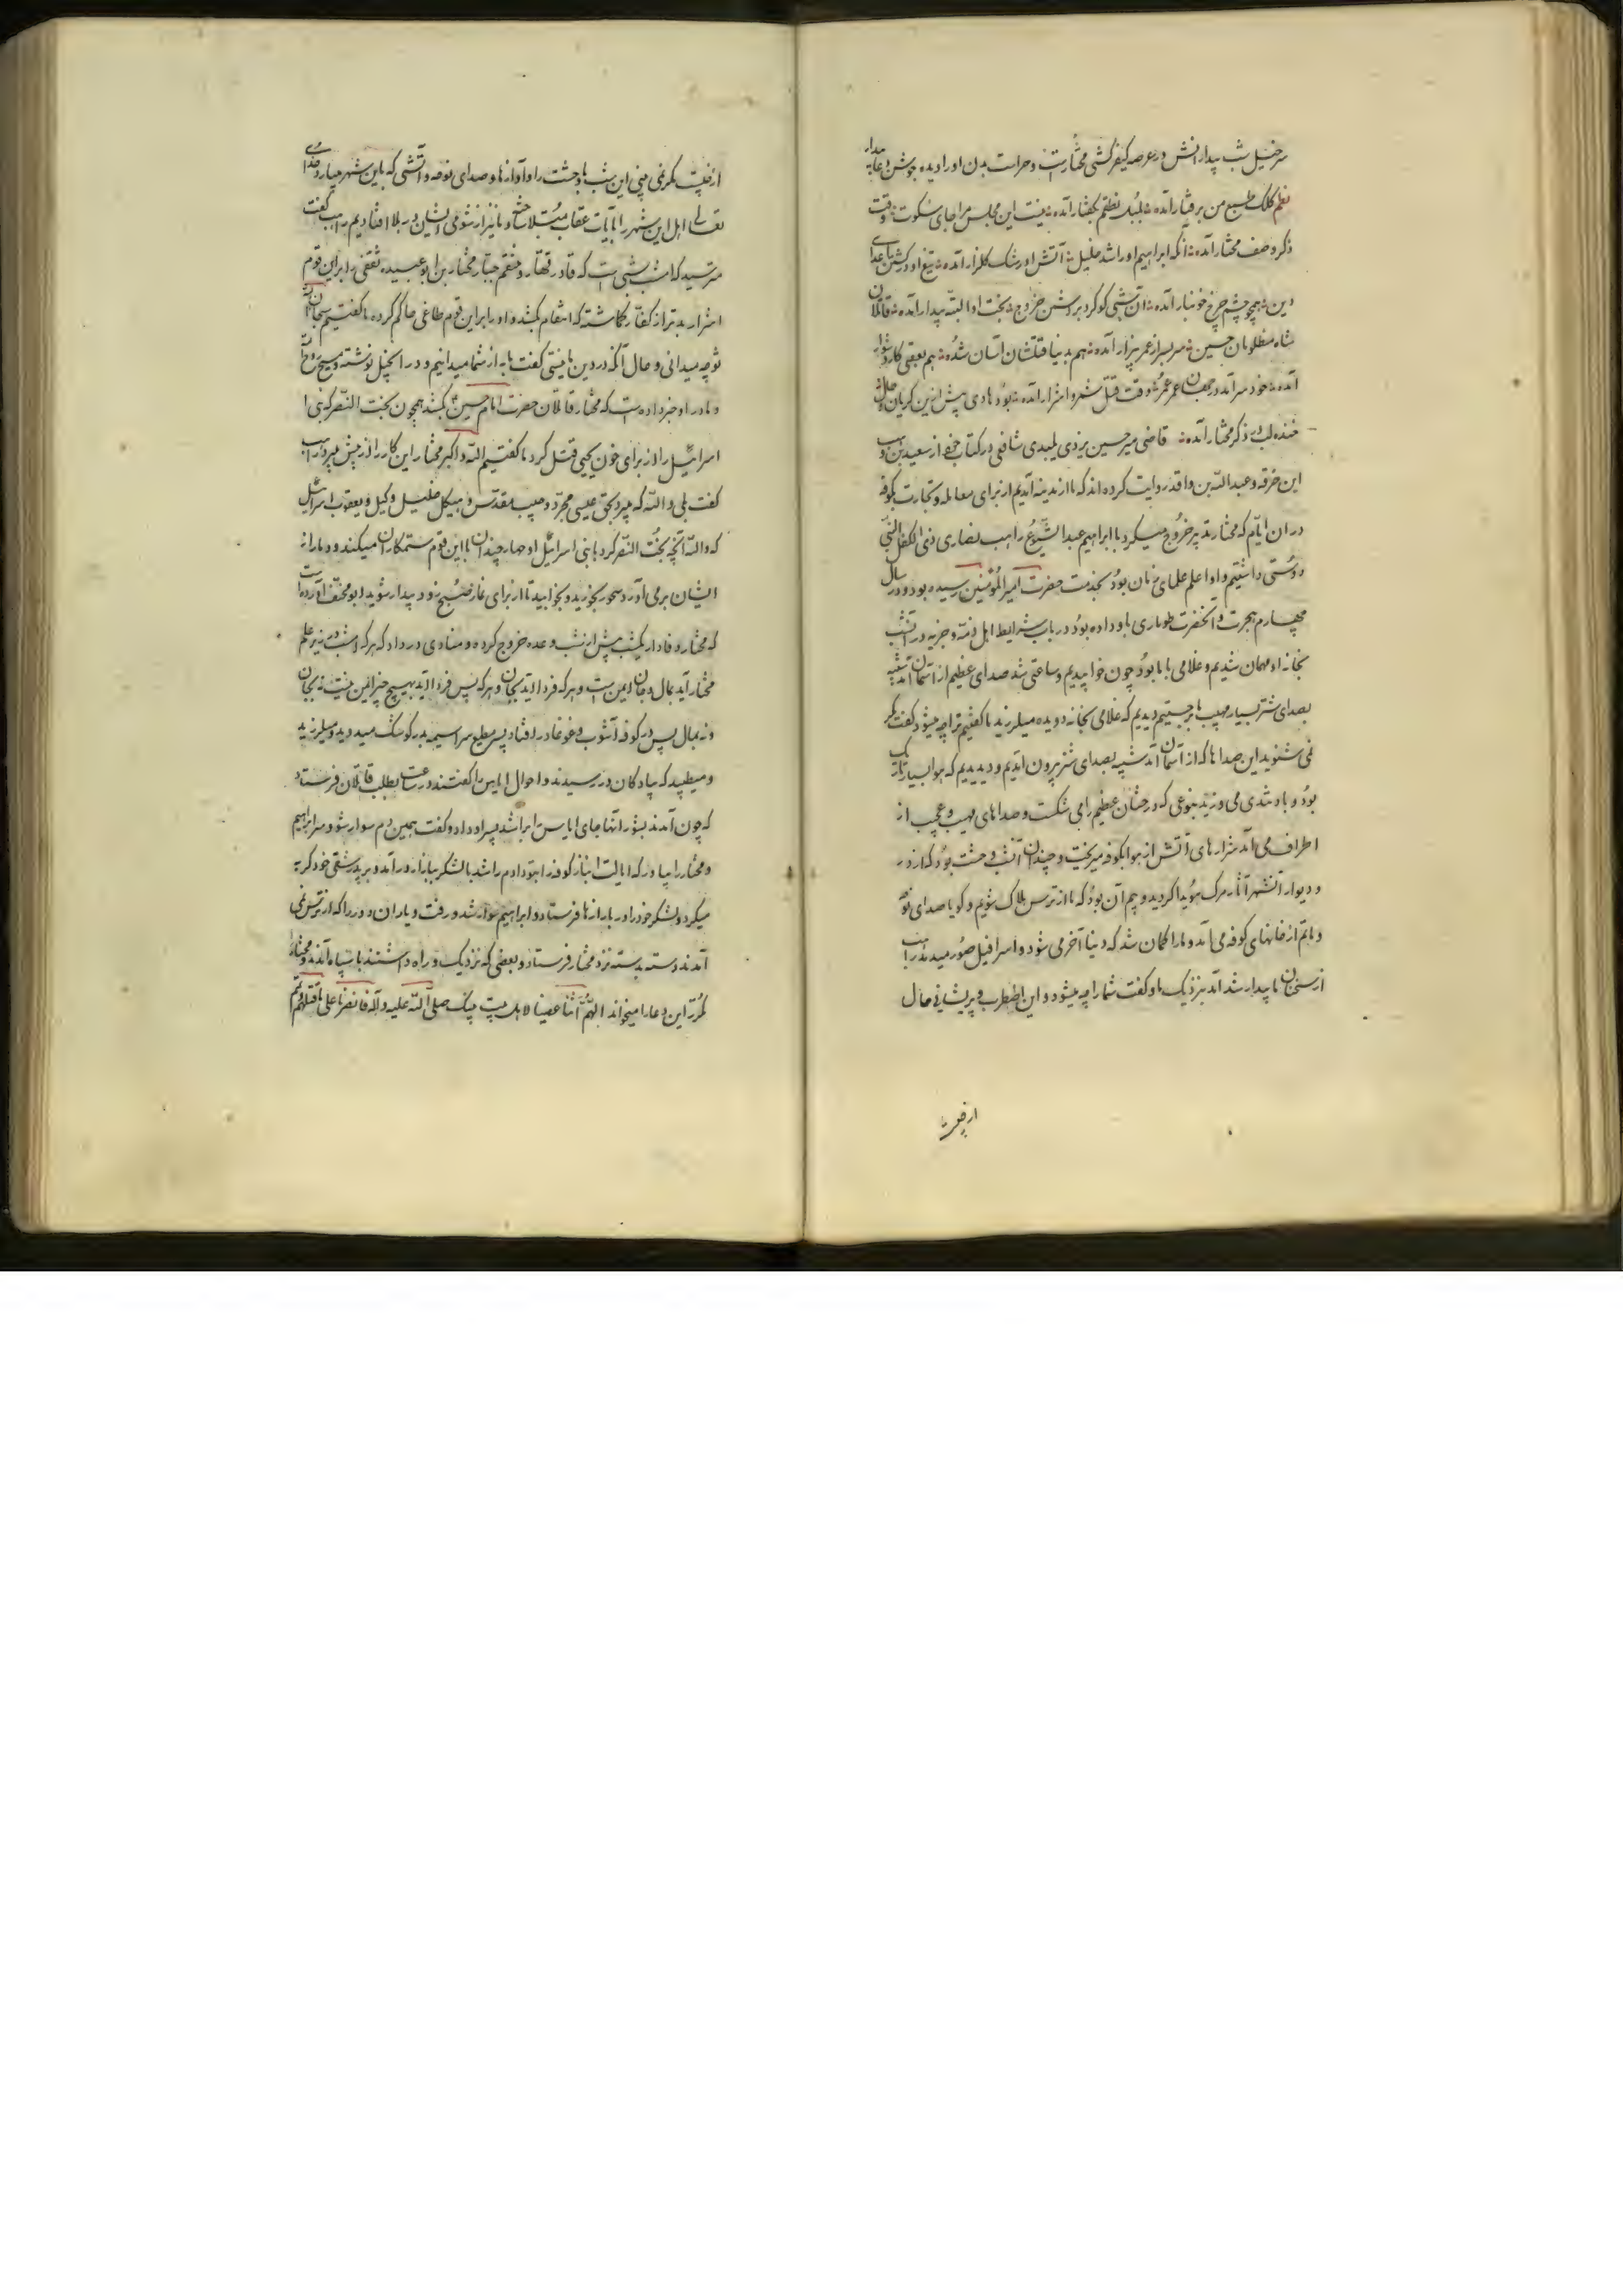 سرخیل شب بیدارانش در عرصه کیفرکشی مختارست و حراست بدن او را دیده جوشن دعای
نظم کلک طبع من برفتار آمده بلبل نطقم بگفتار آمده نیست این مجلس مرا جای سکوت وقت
ذکر وصف مختار آمده آنکه ابراهیم او را شد خلیل آتش او رشک گلزار آمده تیغ او در کشتن اعدای
دین همچو چشم چرخ خونبار آمده آتشی کو کرد روشن خروج بخت او البته بیدار آمده قاتلان
شاه مظلومان حسین سربسر از عمر بیزار آمده هم بدنیا قتلشان آسان شده هم بعقبی کار دشوار
آمده خود سر آمد در جهان عمر عمر وقت قتل شمر و اشرار آمده بود هادی پیش ازین گریان حال
خنده لب در ذکر مختار آمده قاضی میرحسین یزدی میبدی شافعی در کتاب از سعید بن
این خرقه و عبدالله بن واقد روایت کرده اند که ما از مدینه آمدیم از برای معامله و تجارت بکوفه
در آن ایام که مختار تدبیر خروج میکرد با ابراهیم عبد الشیوع راهب نصاری ذی الکفل النبی
دوستی داشتیم و او اعلم علمای زمان بود بخدمت حضرت امیرالمؤمنین رسیده بود در سال
چهارم هجرت و آنحضرت طوماری باو داده بود در باب شرایط اهل ذمه و جزیه در آن شب
بخانه او مهمان شدیم و غلامی با ما بود چون خوابیدیم و ساعتی شد صدای عظیم از آسمان آمد شبیه
بصدای شتر بسیار مهیب ما برجستیم دیدیم که غلامی بخانه دویده میلرزید ما گفتیم ترا چه میشود گفت مگر
نمی شنوید این صداها که از آسمان آمد شبیه بصدای شتر بیرون آمدیم و دیدیم که هوا بسیار تاریک
بود و باد تندی می وزید بنوعی که درختان عظیم را می شکست و صداهای مهیب و عجیب از
اطراف می آمد شرارهای آتش از هوا بکوفه میریخت و چندان آشوب وحشت بود که از در
و دیوار آنشهر آثار مرک هویدا کردید و بیم آن بود که ما از ترس هلاک شویم و کویا صدای نوحه
و ماتم از خانهای کوفه می آمد و ما را گمان شد که دنیا آخر می شود و اسرافیل صور میدمد راهب
از سخنان ما بیدار شد آمد بنزدیک ما و گفت شما را چه میشود و این اضطراب و پریشانی حال
از چیست
از چیست مگر نمی بینی این شب با وحشت را و آوازها و صدای نوحه و آتشی که باین شهر میبارد خدای
تعالی اهل این شهر را بآیات عقاب مبتلا ساخته و ما نیز از شومی ایشان در بلا افتادیم راهب گفت
مترسید که امشب شبی است که قادر قهار و منتقم جبار مختار بن ابوعبیده ثقفی را بر این قوم
اشرار بدتر از کفار گماشته که انتقام کشد و او را بر این قوم طاغی حاکم کرده ما گفتیم سبحان الله
تو چه میدانی و حال آنکه در دین ما نیستی گفت ما به از شما میدانیم و در انجیل نوشته و مسیح روح
و مادر او خبر داده است که مختار قاتلان حضرت امام حسین بکشد همچون بخت النصر که بنی
اسرائیل را از برای خون یحیی قتل کرد ما گفتیم الله اکبر مختار این کار را از پیش میبرد راهب
گفت بلی والله که میبرد بحق عیسی مجرد و صلیب مقدس و هیکل خلیل و کیل و یعقوب اسرائیل
که والله آنچه بخت النصر کرد با بنی اسرائیل او چهار چندان با این قوم ستمکاران میکند و دمار از
ایشان برمی آورد سحور بخورید و بخوابید تا از برای نماز صبح زود بیدار شوید ابومخنف آورده است
که مختار وفادار یکشب پیش از شب وعده خروج کرده و منادی در داد که هر که امشب در زیر علم
مختار آید بمال و جان ایمن است و هر که فردا آید بجان و هر که پس فردا آید بهیچ چیز ایمن نیست نه بجان
و نه بمال پس در کوفه آشوب و غوغا در افتاد پسر مطیع سراسیمه بدر کوشک میدوید و میلرزید
و میطپید که پیادکان در رسیدند و احوال ایاس را گفتند در ساعت بطلب قاتلان فرستاد
که چون آمدند بشورانتها جای ایاس را براشد پسر او داد و گفت همین دم سوار شو و سر ابراهیم
و مختار را بیاور که ایالت انبار کوفه را بتو دادم راشد با لشکر ببازار درآمد و بر پدر شقی خود گریه
میکرد و لشکر خود را در بازارها فرستاد و ابراهیم سوار شد و رفت و یاران دور را که از ترس نمی
آمدند دسته بدسته نزد مختار فرستاد و بعضی که نزدیک و راه داشتند با سپاه آمدند و مختار
مکرر این دعا را میخواند اللهم انا غضبنا لاهل بیت نبیک صلی الله علیه و آله فانصرنا علی من قتلهم